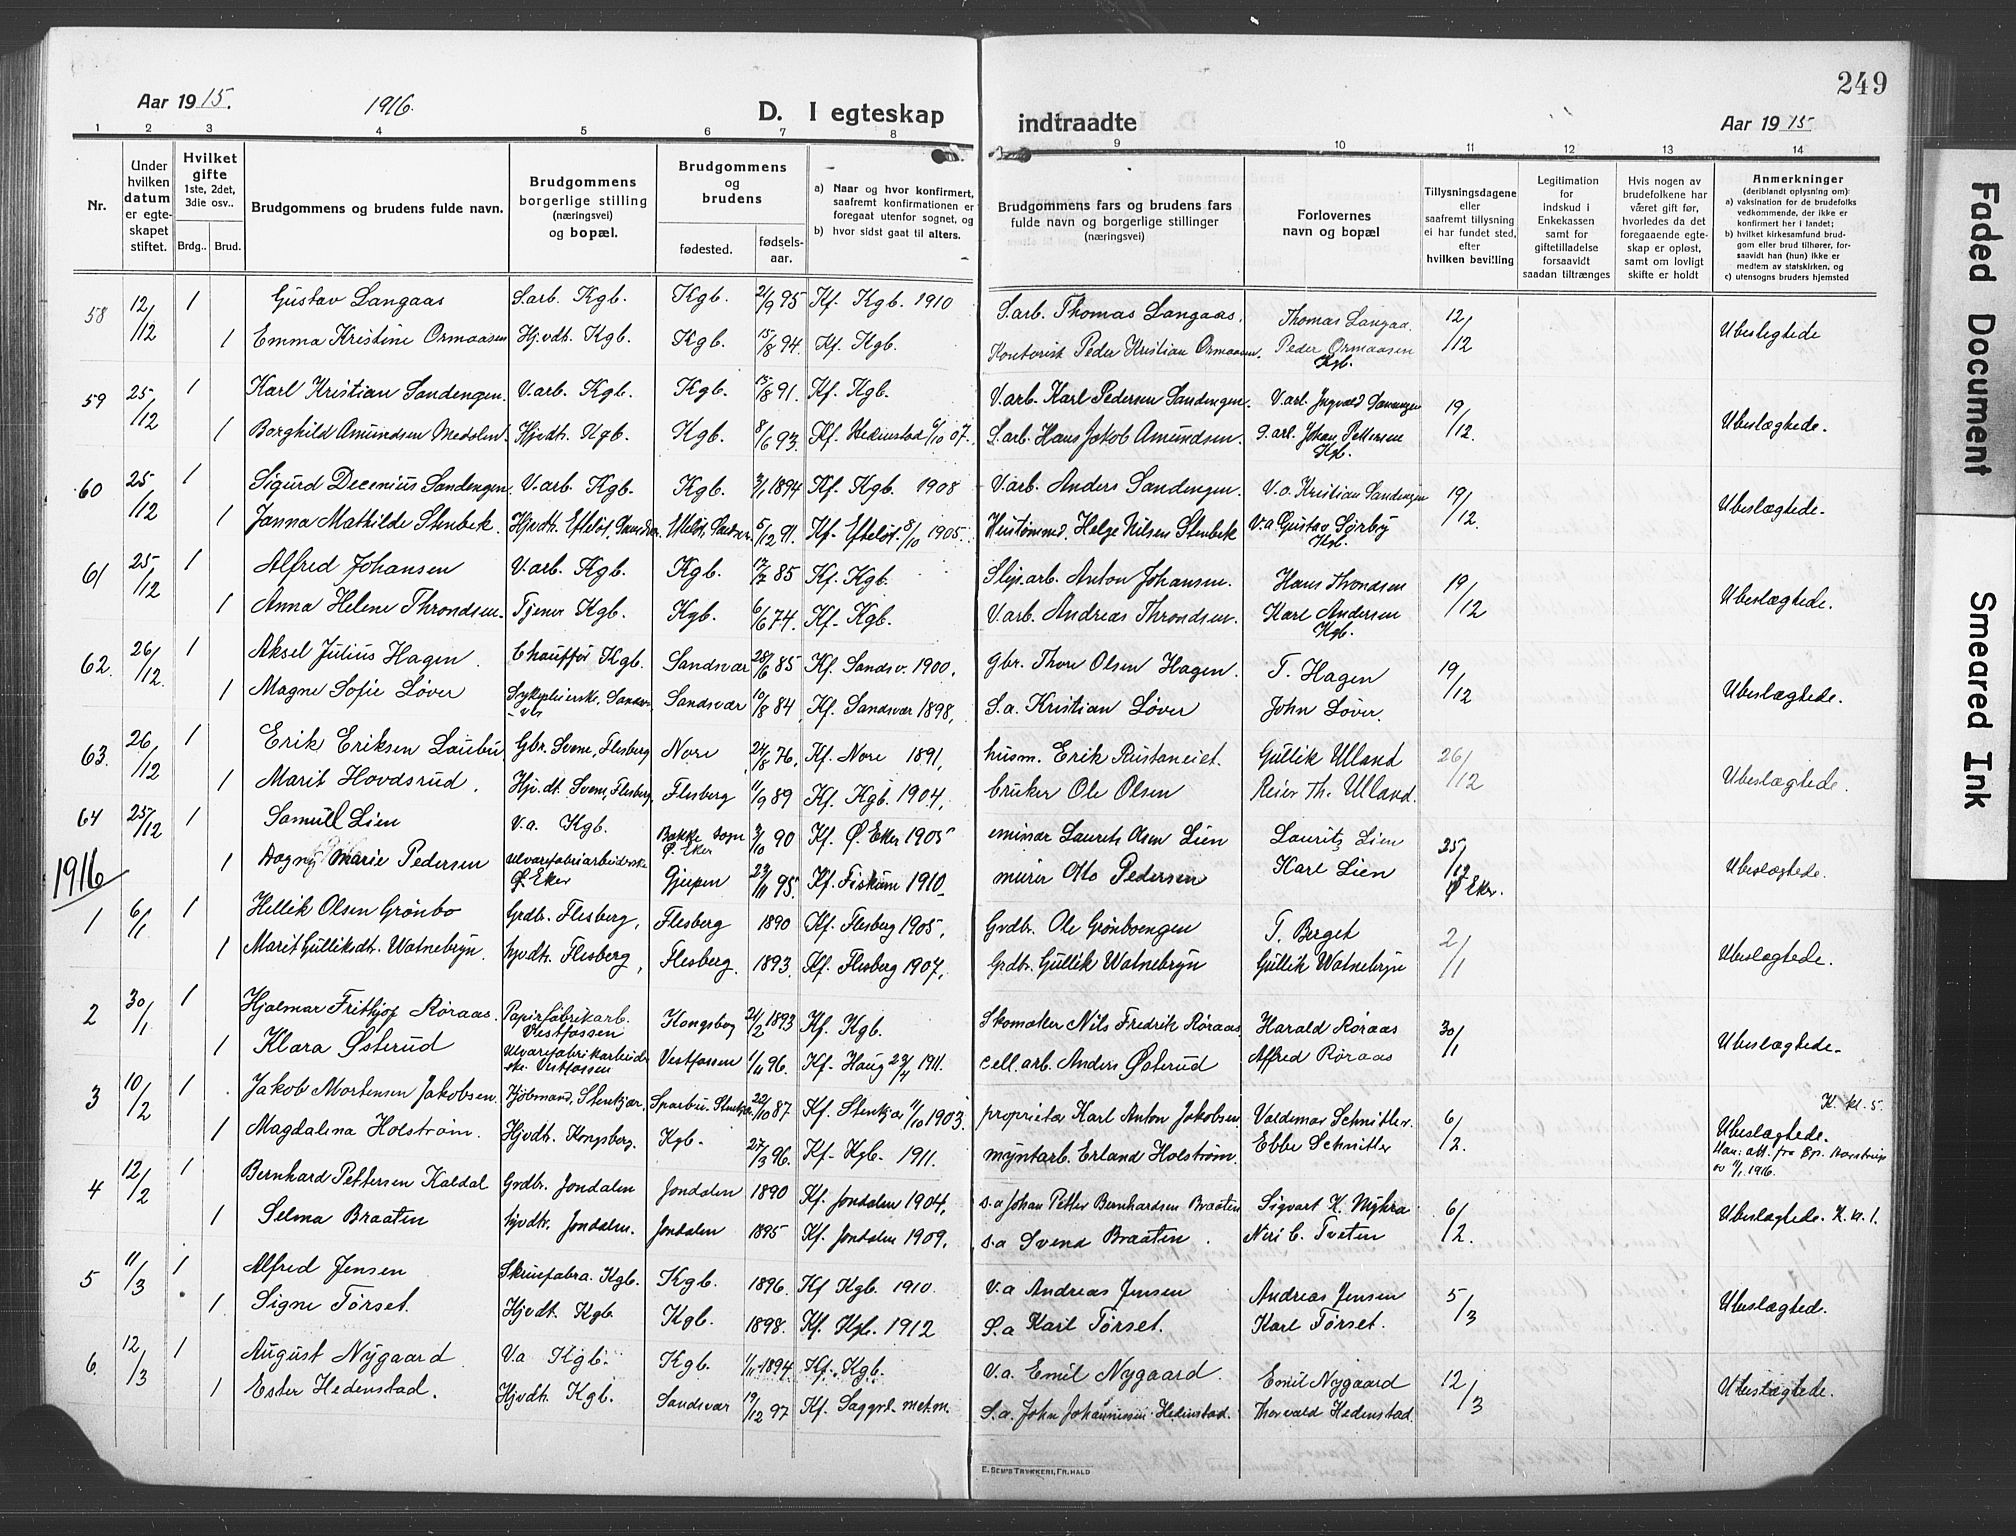 249
Aar 1915. 1916. D. I egteskap indtraadte Aar 1915
1 2 3 4 5 6 7 8 9 10 11 12 13 14
Nr.
Under hvilken datum er egteskapet stiftet.
Hvilket gifte 1ste, 2det, 3die osv..
Brdg.. Brud.
Brudgommens og brudens fulde navn.
Brudgommens borgerlige stilling (næringsvei) og bopæl.
Brudgommens og brudens
fødested. fødselsaar.
a) Naar og hvor konfirmert, saafremt konfirmationen er foregaat utenfor sognet, og
b) hvor sidst gaat til alters.
Brudgommens fars og brudens fars fulde navn og borgerlige stillinger (næringsvei)
Forlovernes navn og bopæl
Tillysningsdagene eller saafremt tillysning ei har fundet sted, efter hvilken bevilling
Legitimation for indskud i Enkekassen samt for giftetilladelse forsaavidt saadan tiltrænges
Hvis nogen av brudefolkene har været gift før, hvorledes da det foregaaende egteskap er opløst, samt om lovligt skifte er holdt
Anmerkninger (deriblandt oplysning om):
a) vaksination for de brudefolks vedkommende, der ikke er konfirmert her i landet;
b) hvilket kirkesamfund brudgom eller brud tilhører, forsaavidt han (hun) ikke er medlem av statskirken, og
c) utensogns bruders hjemsted
58 12/12 1 Gustav Langaas S.arb. Kgb. Kgb. 21/9 95 Kf. Kgb. 1910 S.arb. Thomas Langaas. Thomas Langaa. 12/12 Ubeslegtede
1 Emma Kristine Ormaasen Hjvdt. Kgb. Kgb. 15/8 94. Kf. Kgb. Kontorist Peder Kristian Ormaasen. Peder Ormaasen Kgb.
59 25/12 1 Karl Kristian Sandengen. V.arb. Kgb. Kgb. 15/8 91. Kf. Kgb. V.arb. Karl Pedersen Sandengen. V.arb. Ingvald Sandengen 19/12. Ubeslægtede.
1 Borghild Amundsen Medalen. Hjvdt. Kgb. Kgb. 8/6 93. Kf. Hedenstad 6/10 07. S.arb. Hans Jakob Amundsen. S.arb. Johan Pettersen Kgb.
60 25/12 1 Sigurd Decenius Sandengen. V.arb. Kgb. Kgb. 3/1 1894 Kf. Kgb. 1908 V.arb. Anders Sandengen. V.a. Kristian Sandengen 19/12. Ubeslægtede.
1 Janna Mathilde Stenbek. Hjvdt. Efteløt, Sandsv. Efteløt, Sandsv. 5/12 91. Kf. Efteløt. 8/10 1905. Hustømmd. Helge Nilsen Stenbek V.a. Gustav Sørby Kgb.
61 25/12 1 Alfred Johansen V.arb. Kgb. Kgb. 17/7 85 Kf. Kgb. Slip.arb. Anton Johansen. Hans Throndsen 19/12 Ubeslægtede.
1 Anna Helene Throndsen. Tjener Kgb. Kgb. 6/6 74. Kf. Kgb. V.arb. Andreas Throndsen. Karl Andersen Kgb.
62. 26/12. 1 Aksel Julius Hagen. Chauffør Kgb. Sandsvær 28/6 85 Kf. Sandsv. 1900. Gbr. Thore Olsen Hagen. T. Hagen 19/12 Ubeslægtede.
1 Magne Sofie Løver Sykepleiersk. Sandsv. Sandsvær 10/8 84. Kf. Sandsvær 1898. S.a. Kristian Løver John Løver.
63. 26/12 1 Erik Eriksen Laubu Gbr. Svene, Flesberg Nore 24/8 76. Kf. Nore 1891. husm. Erik Rustaneiet. Gullik Ulland 26/12 Ubeslægtede.
1 Marit Hovdsrud. Hjv.dt. Svene, Flesberg. Flesberg 11/9 89 Kf. Kgb. 1904. bruker Ole Olsen Reier Th. Ulland.
64 25/12 1 Samuel Lien V.a. Kgb. Bakke sogn Ø. Eker 3/10 90 Kf. Ø. Eker 1905 eminær Laurets Olsen Lien Lauritz Lien 25/12 Ø Eker. Ubeslægtede.
1 Dagny Marie Pedersen Ulvarefabriarbeiderske Ø. Eker Gjerpen 23/11 95. Kf. Fiskum 1910 murer Otto Pedersen Karl Lien
1916
1 6/1 1 Hellik Olsen Grønbo Grdbr. Flesberg, Flesberg 1890 Kf. Flesberg 1905. Grdbr. Ole Grønboengen T. Berget 2/1 Ubeslægtede.
1 Marit Gulliksdt. Watnebryn. Hjvdt. Flesberg, Flesberg. 1893. Kf. Flesberg 1907. Grdbr. Gullik Watnebryn Gullik Watnebryn
2 30/1. 1 Hjalmar Frithjof Røraas. Papirfabrikarb. Vestfossen Kongsberg 24/2 1893 Kf. Kgb. Skomaker Nils Fredrik Røraas. Harald Røraas 30/1 Ubeslægtede.
1 Klara Østerud Ulvarefabrikarbeiderske. Vestfossen Vestfossen 1/11 96. Kf. Haug 23/4 1911. cell.arb. Anders Østerud Alfred Røraas
3 10/2 1 Jakob Mortensen Jakobsen. Kjøbmand, Stenkjær, Sparbu, Stenkjær. 22/10 87 Kf. Stenkjær 11/10 1903. proprietær Karl Anton Jakobsen Valdemar Schnitler. 6/2. K. kl. 5. Ubeslægtede.
1 Magdalena Holstrøm. Hjvdt. Kongsberg. Kgb. 27/3 96. Kf. Kgb. 1911. myntarb. Erland Holstrøm. Ebbe Schnitler
4 12/2 1 Bernhard Pettersen Kaldal Grdbr. Jondalen Jondalen 1890 Kf. Jondalen 1904. s.a Johan Petter Bernhardsen Braaten Sigvart K. Myhra 6/2. Ubeslægtede. K. kl. 1.
1 Selma Braaten Hjvdt. Jondalen. Jondalen 1895 Kf. Jondalen 1909. s.a Svend Braaten. Neri C. Tveten
5 11/3 1 Alfred Jensen Skruefabra. Kgb. Kgb. 1896. Kf Kgb. 1910. V.a Andreas Jensen Andreas Jensen 5/3 Ubeslægtede.
1 Signe Tørset. Hjvdt. Kgb. Kgb. 1898. Kf. Kgb. 1912 S.a Karl Tørset. Karl Tørset.
6. 12/3 1 August Nygaard V.a Kgb. Kgb. 1/11 1894. Kf. Kgb. V.a. Emil Nygaard. Emil Nygaard 12/3 Ubeslægtede.
1 Ester Hedenstad. Hjvdt. Kgb. Sandsvær 19/12 97 Kf. Saggrd. met.m. S.a. John Johannesen Hedenstad. Thorvald Hedenstad.
E. SEM'S TRYKKERI, FR.HALD
Faded Document
Smeared Ink